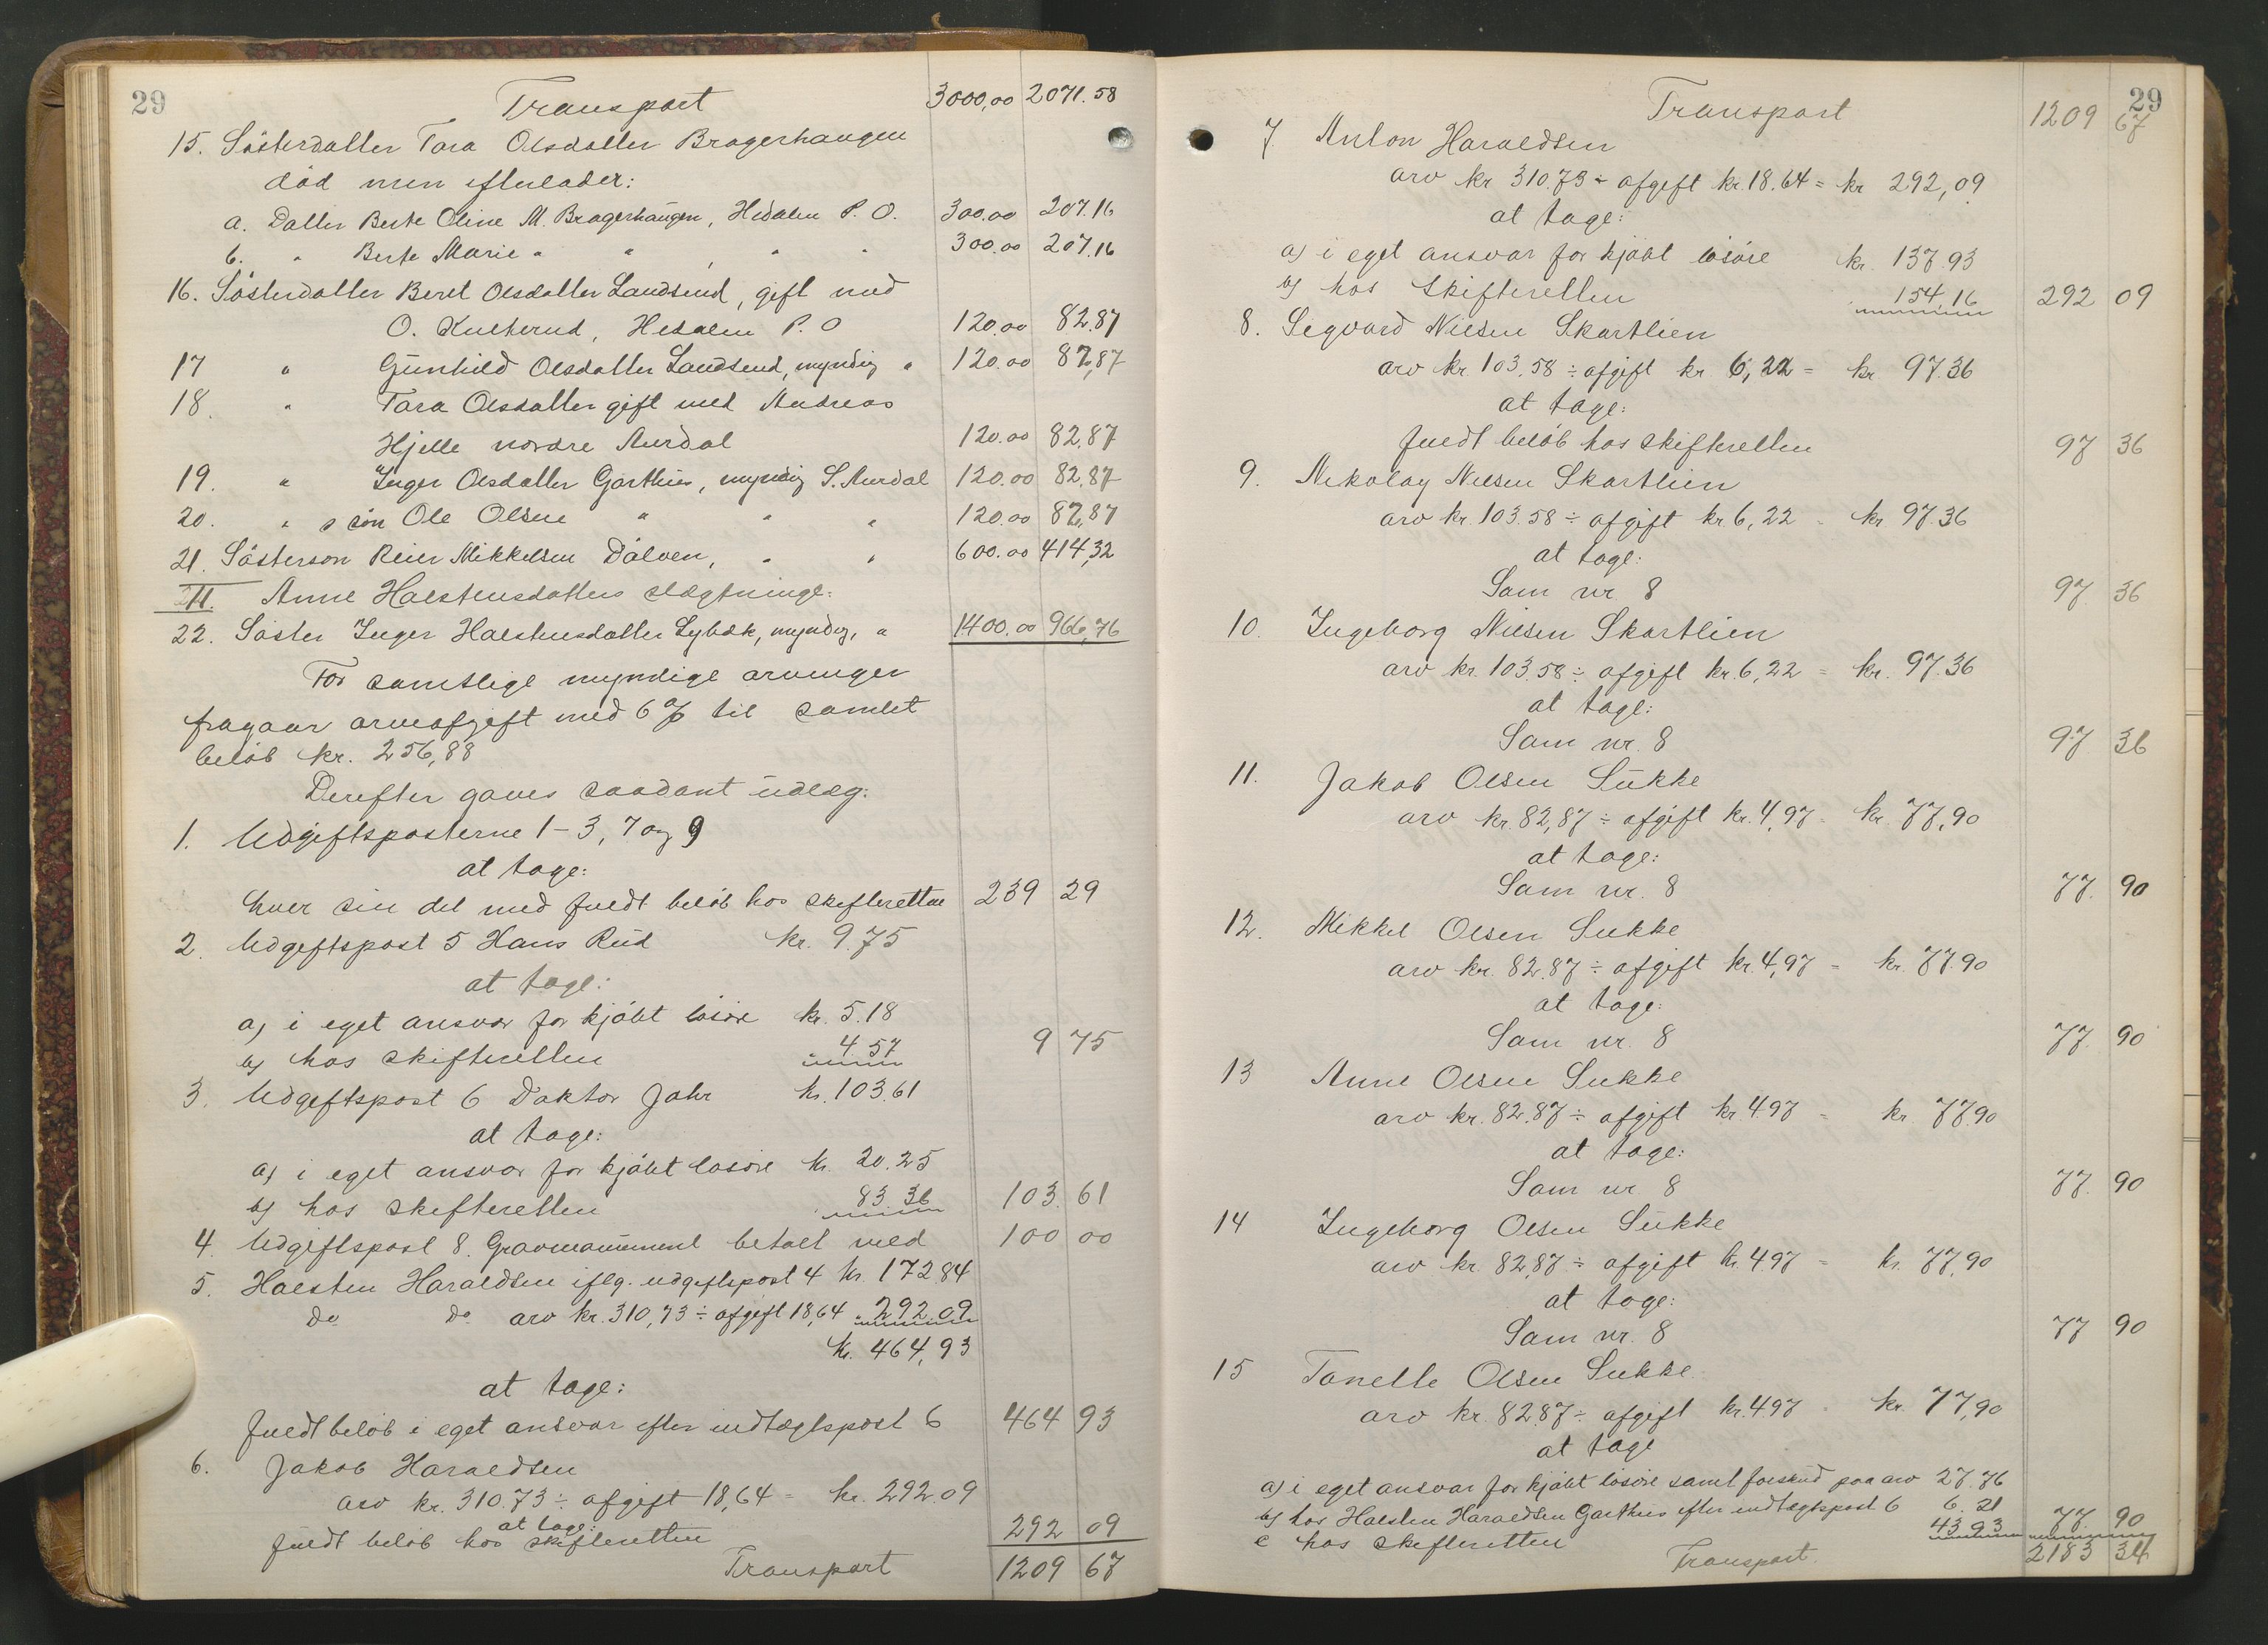 29 Transport 3000,00 2071.58
15. Søsterdatter Tora Olsdatter Bragerhaugen
död men efterlader:
a. Datter Berte Oline M. Bragerhaugen, Hedalen P. O. 300.00 207.16
b. " Berte Marie " " , " " 300.00 207.16
16. Søsterdatter Beret Olsdatter Landsend, gift med
O. Kulterud, Hedalen P. O 120.00 82.87
17 " Gunhild Olsdatter Landsend, myndig " 120.00 82,87
18. " Tora Olsdatter gift med Andreas
Hjelle nordre Aurdal 120.00 82,87
19. " Inger Olsdatter Garthus, myndig S. Aurdal 120.00 82.87
20. " s søn Ole Olsen " " " 120.00 82,87
21. Søsterson Reier Mikkelsen Dølven, " " 600.00 414,32
II. Anne Halstensdatters slægtninge:
22. Søster Inger Halstensdatter Lybæk, myndig, " 1400.00 966,76
For samtlige myndige arvinger
fragaar arveafgift med 6 % til samlet
beløb kr. 256,88
Derefter gaves saadant udlæg:
1. Udgiftsposterne 1-3, 7 og 9
at tage:
hver sin del med fuldt beløb hos skifteretten 239 29
2. Udgiftspost 5 Hans Rud kr. 9.75
at tage:
a) i eget ansvar for kjøbt løsøre kr. 5.18
b) hos skifteretten " 4 57 9 75
3. Udgiftspost 6 Doktor Jahr kr. 103.61
at tage:
a) i eget ansvar for kjøbt løsøre kr. 20.25
b) hos skifteretten " 83.36 103. 61
4. Udgiftspost 8. Gravmonument betalt med 100 00
5. Halsten Haraldsen iflg. udgiftspost 4 kr. 172 84
do do arv kr. 310,73 ÷ afgift 18,64 " 292.09
kr. 464,93
at tage:
fuldt beløb i eget ansvar efter indtægtspost 6 464 93
6. Jakob Haraldsen
arv kr. 310.73 ÷ afgift 18,64 = kr. 292.09
at tage:
fuldt beløb hos skifteretten 292 09
Transport 1209 67
Transport 1209 67 29
7 Anton Haraldsen
arv kr 310.73 ÷ afgift kr. 18.64 = kr 292,09
at tage:
a) i eget ansvar for kjøbt løsøre kr. 137.93
b) hos skifteretten " 154,16 292 09
8. Sigvard Nilsen Skartlien
arv kr. 103.58 ÷ afgift kr. 6,22 = kr 97.36
at tage:
fuldt beløb hos skifteretten 97 36
9. Nikolay Nilsen Skartlien
arv kr. 103.58 ÷ afgift kr. 6,22 = kr 97.36
at tage:
Som nr. 8 97. 36
10. Ingeborg Nilsen Skartlien
arv kr. 103.58 ÷ afgift kr. 6,22 = kr. 97.36
at tage:
Som nr. 8 97. 36
11. Jakob Olsen Sukke
arv kr. 82,87 ÷ afgift kr. 4,97 = kr. 77,90
at tage:
Som nr. 8 77. 90
12. Mikkel Olsen Sukke
arv kr. 82.87 ÷ afgift kr. 4,97 = kr. 77.90
at tage:
Som nr. 8 77. 90
13 Anne Olsen Sukke
arv kr. 82.87 ÷ afgift kr. 4.97 = kr 77.90
at tage:
Som nr 8 77. 90
14 Ingeborg Olsen Sukke
arv kr. 82,87 ÷ afgift kr. 4.97 = kr. 77,90
at tage:
Som nr. 8 77 90
15 Tonette Olsen Sukke
arv kr. 82,87 ÷ afgift kr. 4.97 = kr. 77,90
at tage
a) i eget ansvar for kjøbt løsøre samt forskud paa arv 27.76
b) hos Halsten Haraldsen Garthus efter indtægtspost 6 6. 21
c hos skifteretten 43.93 77 90
Transport 2183 34